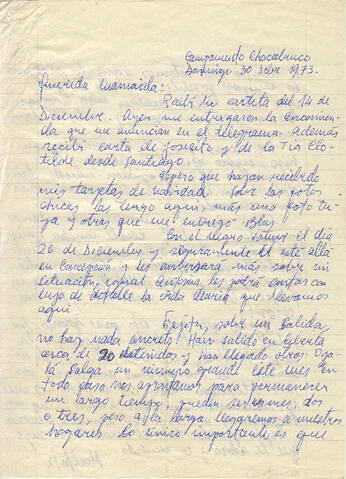 Campamento Chacabuco
Domingo 30 Dbre 1973.
Querida Mamacita:
Recibí tu cartita del 14 de
Diciembre. Ayer me entregaron la encomienda
que me anuncian en el telegrama. Además
recibí carta de Joseito y de la Tía Clo-
tilde desde Santiago.
Espero que hayan recibido
mis tarjetas de Navidad. Sobre las fotos
chicas las tengo aquí, más una foto tu-
ya y otras que me entregó Blas.
Con el Negro estuve el día
26 de Diciembre y seguramente él esté allá
en Concepción y les conversará más sobre mi
situación, igual les podrá contar con
lujo de detalle la vida diaria que llevamos
aquí.
sobre mi salida,
no hay nada concreto! Han salido en libertad
cerca de 20 detenidos y han llegado otros. Oja-
lá salga un número grande este mes en
todo caso nos aprontamos para permanecer
un largo tiempo, pueden ser un mes, dos
o tres, pero a la larga llegaremos a nuestros
hogares. Lo único importante es que